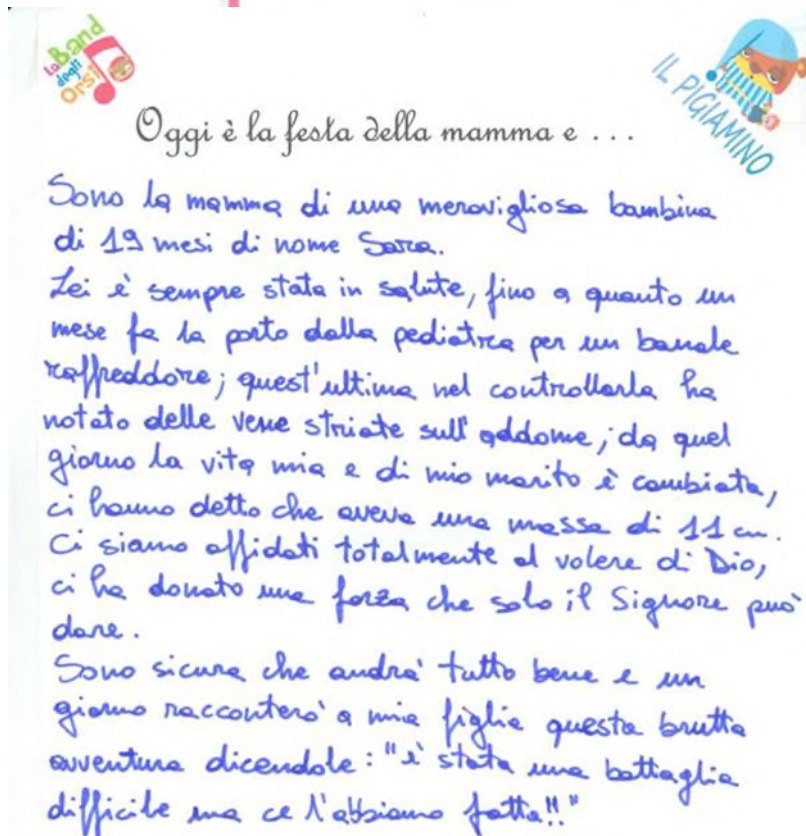 La Band
degli
Orsi
IL PIGIAMINO
Oggi è la festa della mamma e ...
Sono la mamma di una meravigliosa bambina
di 19 mesi di nome Sara.
Lei è sempre stata in salute, fino a quanto un
mese fa la porto dalla pediatra per un banale
raffreddore; quest'ultima nel controllarla ha
notato delle vene striate sull'addome; da quel
giorno la vita mia e di mio marito è cambiata,
ci hanno detto che aveva una massa di 11 cm.
Ci siamo affidati totalmente al volere di Dio,
ci ha donato una forza che solo il Signore può
dare.
Sono sicura che andra' tutto bene e un
giorno racconterò a mia figlia questa brutta
avventura dicendole: "è stata una battaglia
difficile ma ce l'abbiamo fatta!!"